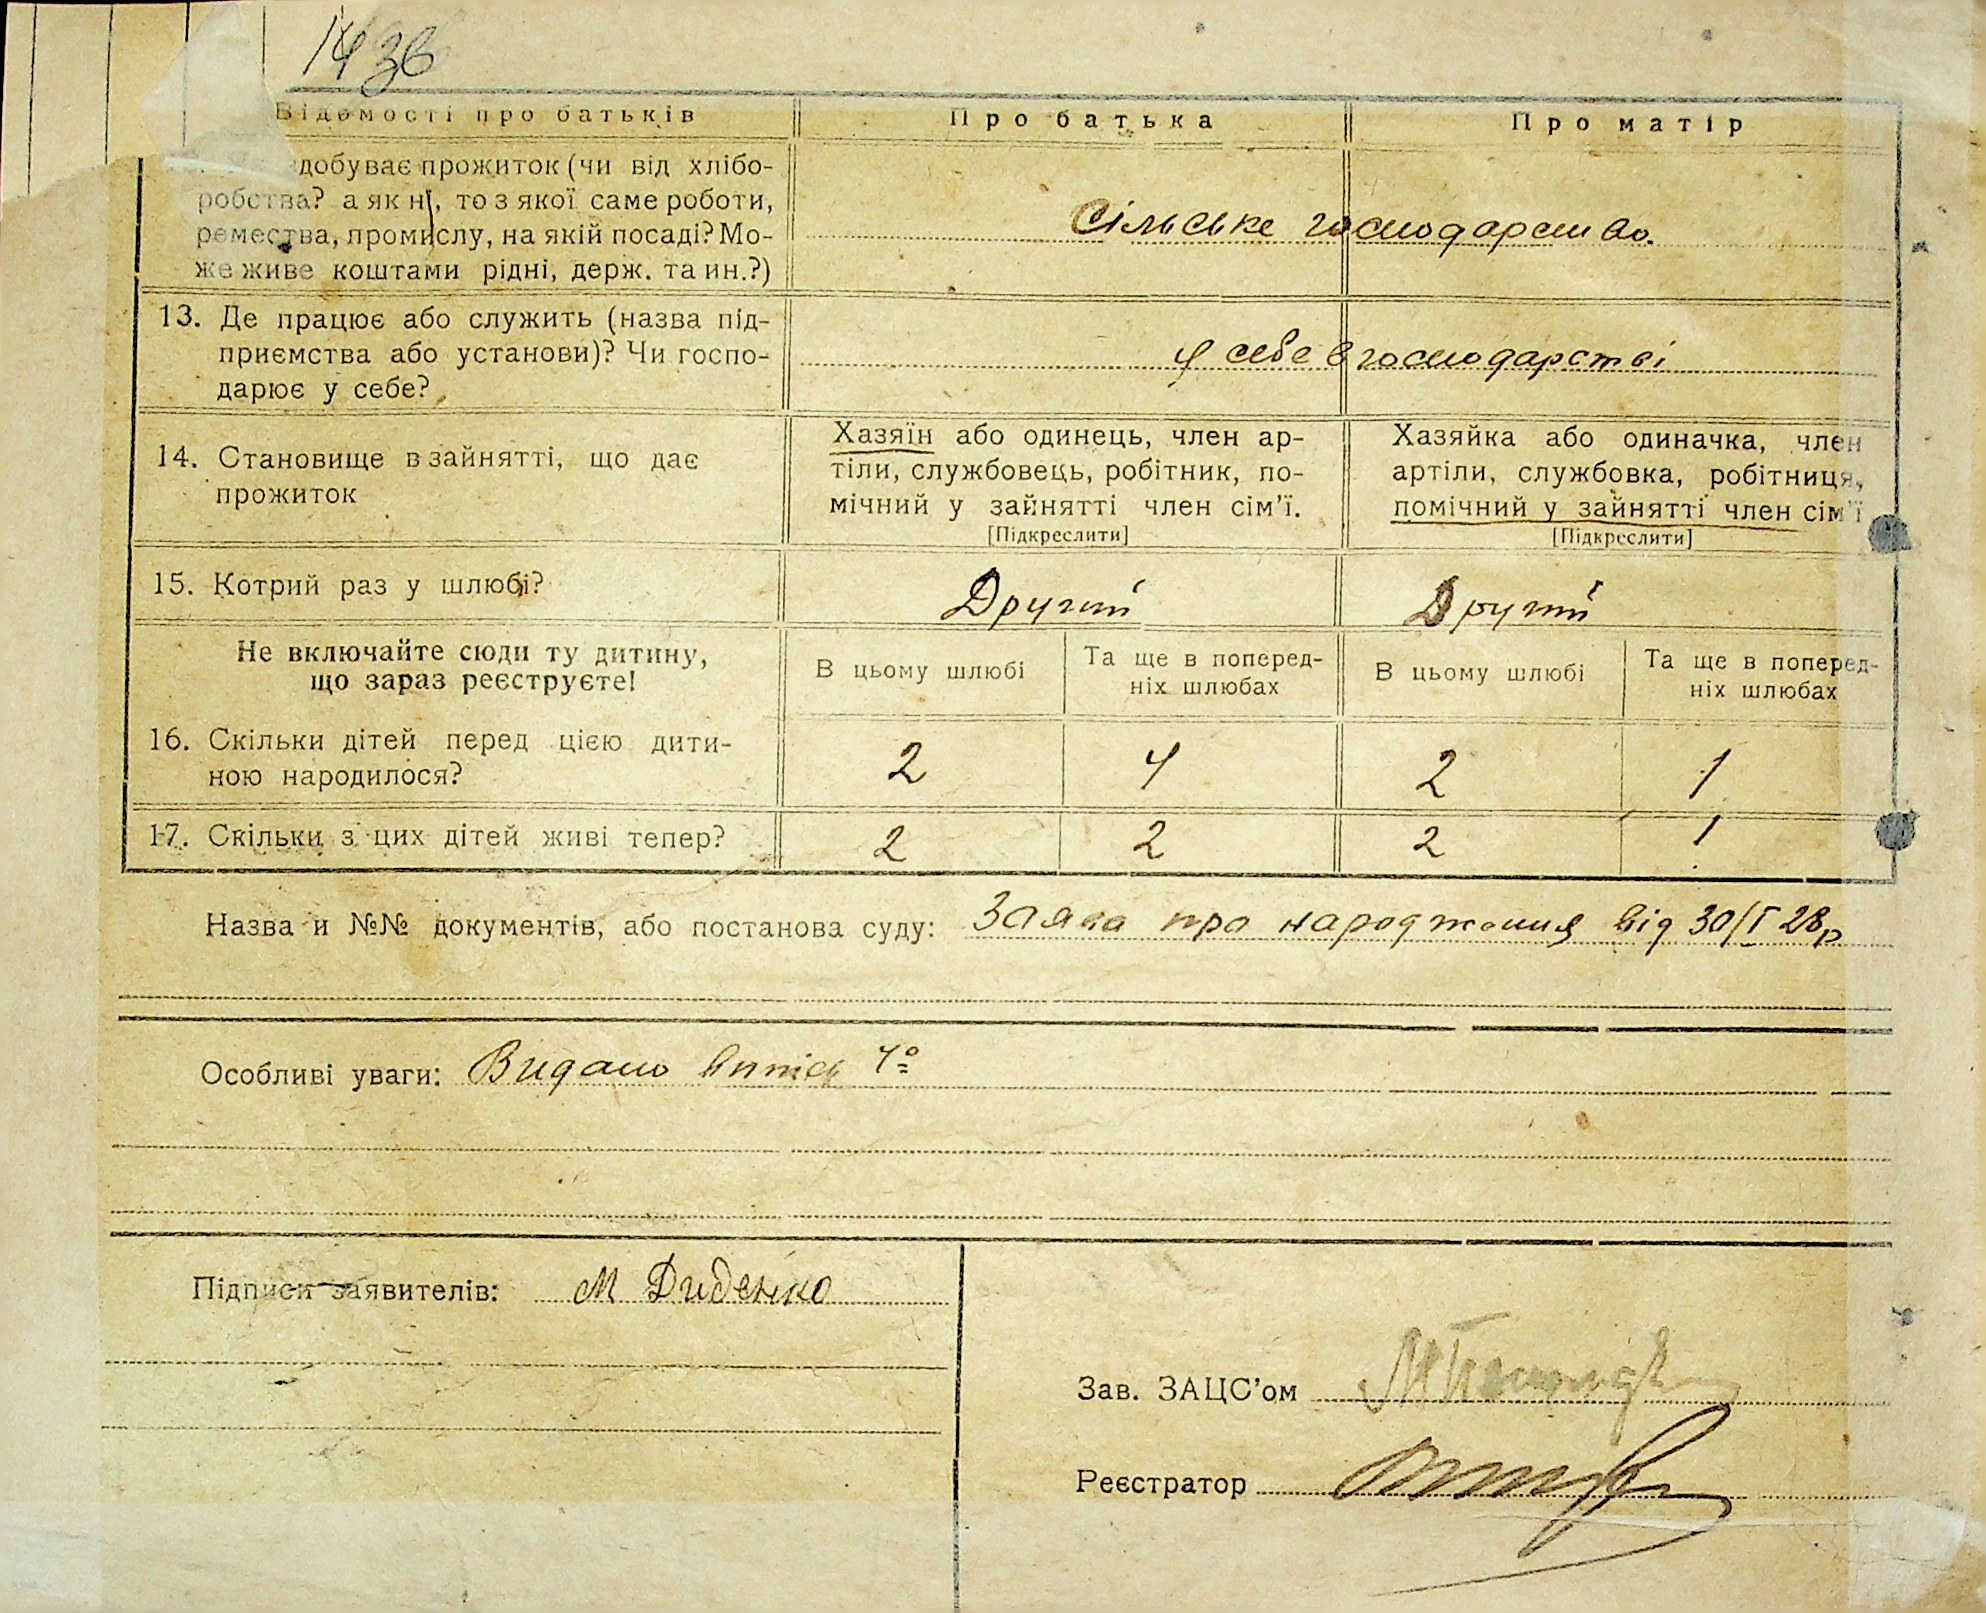 14 зв
Відомості про батьків
Про батька
Про матір
добуває прожиток (чи від хлібо-
робства? а як ні, то з якої саме роботи,
ремества, промислу, на якій посаді? Мо-
же живе коштами рідні, держ. та ин.?)
Сільське господарство.
13. Де працює або служить (назва під-
приємства або установи)? Чи госпо-
дарює у себе?
у себе в господарстві
14. Становище в зайнятті, що дає
прожиток
Хазяїн або одинець, член ар-
тіли, службовець, робітник, по-
мічний у зайнятті член сім'ї.
[Підкреслити]
Хазяйка або одиначка, член
артіли, службовка, робітниця,
помічний у зайнятті член сім'ї
[Підкреслити]
15. Котрий раз у шлюбі?
Другий
Другий
Не включайте сюди ту дитину,
що зараз реєструєте!
В цьому шлюбі
Та ще в поперед-
ніх шлюбах
В цьому шлюбі
Та ще в поперед-
ніх шлюбах
16. Скільки дітей перед цією дити-
ною народилося?
2 4 2 1
17. Скільки з цих дітей живі тепер?
2 2 2 1
Назва и №№ документів, або постанова суду: Заява про народження від 30/I 28р
Особливі уваги: Видано витяг
Підписи заявителів: М Диденко
Зав. ЗАЦС'ом
Реєстратор